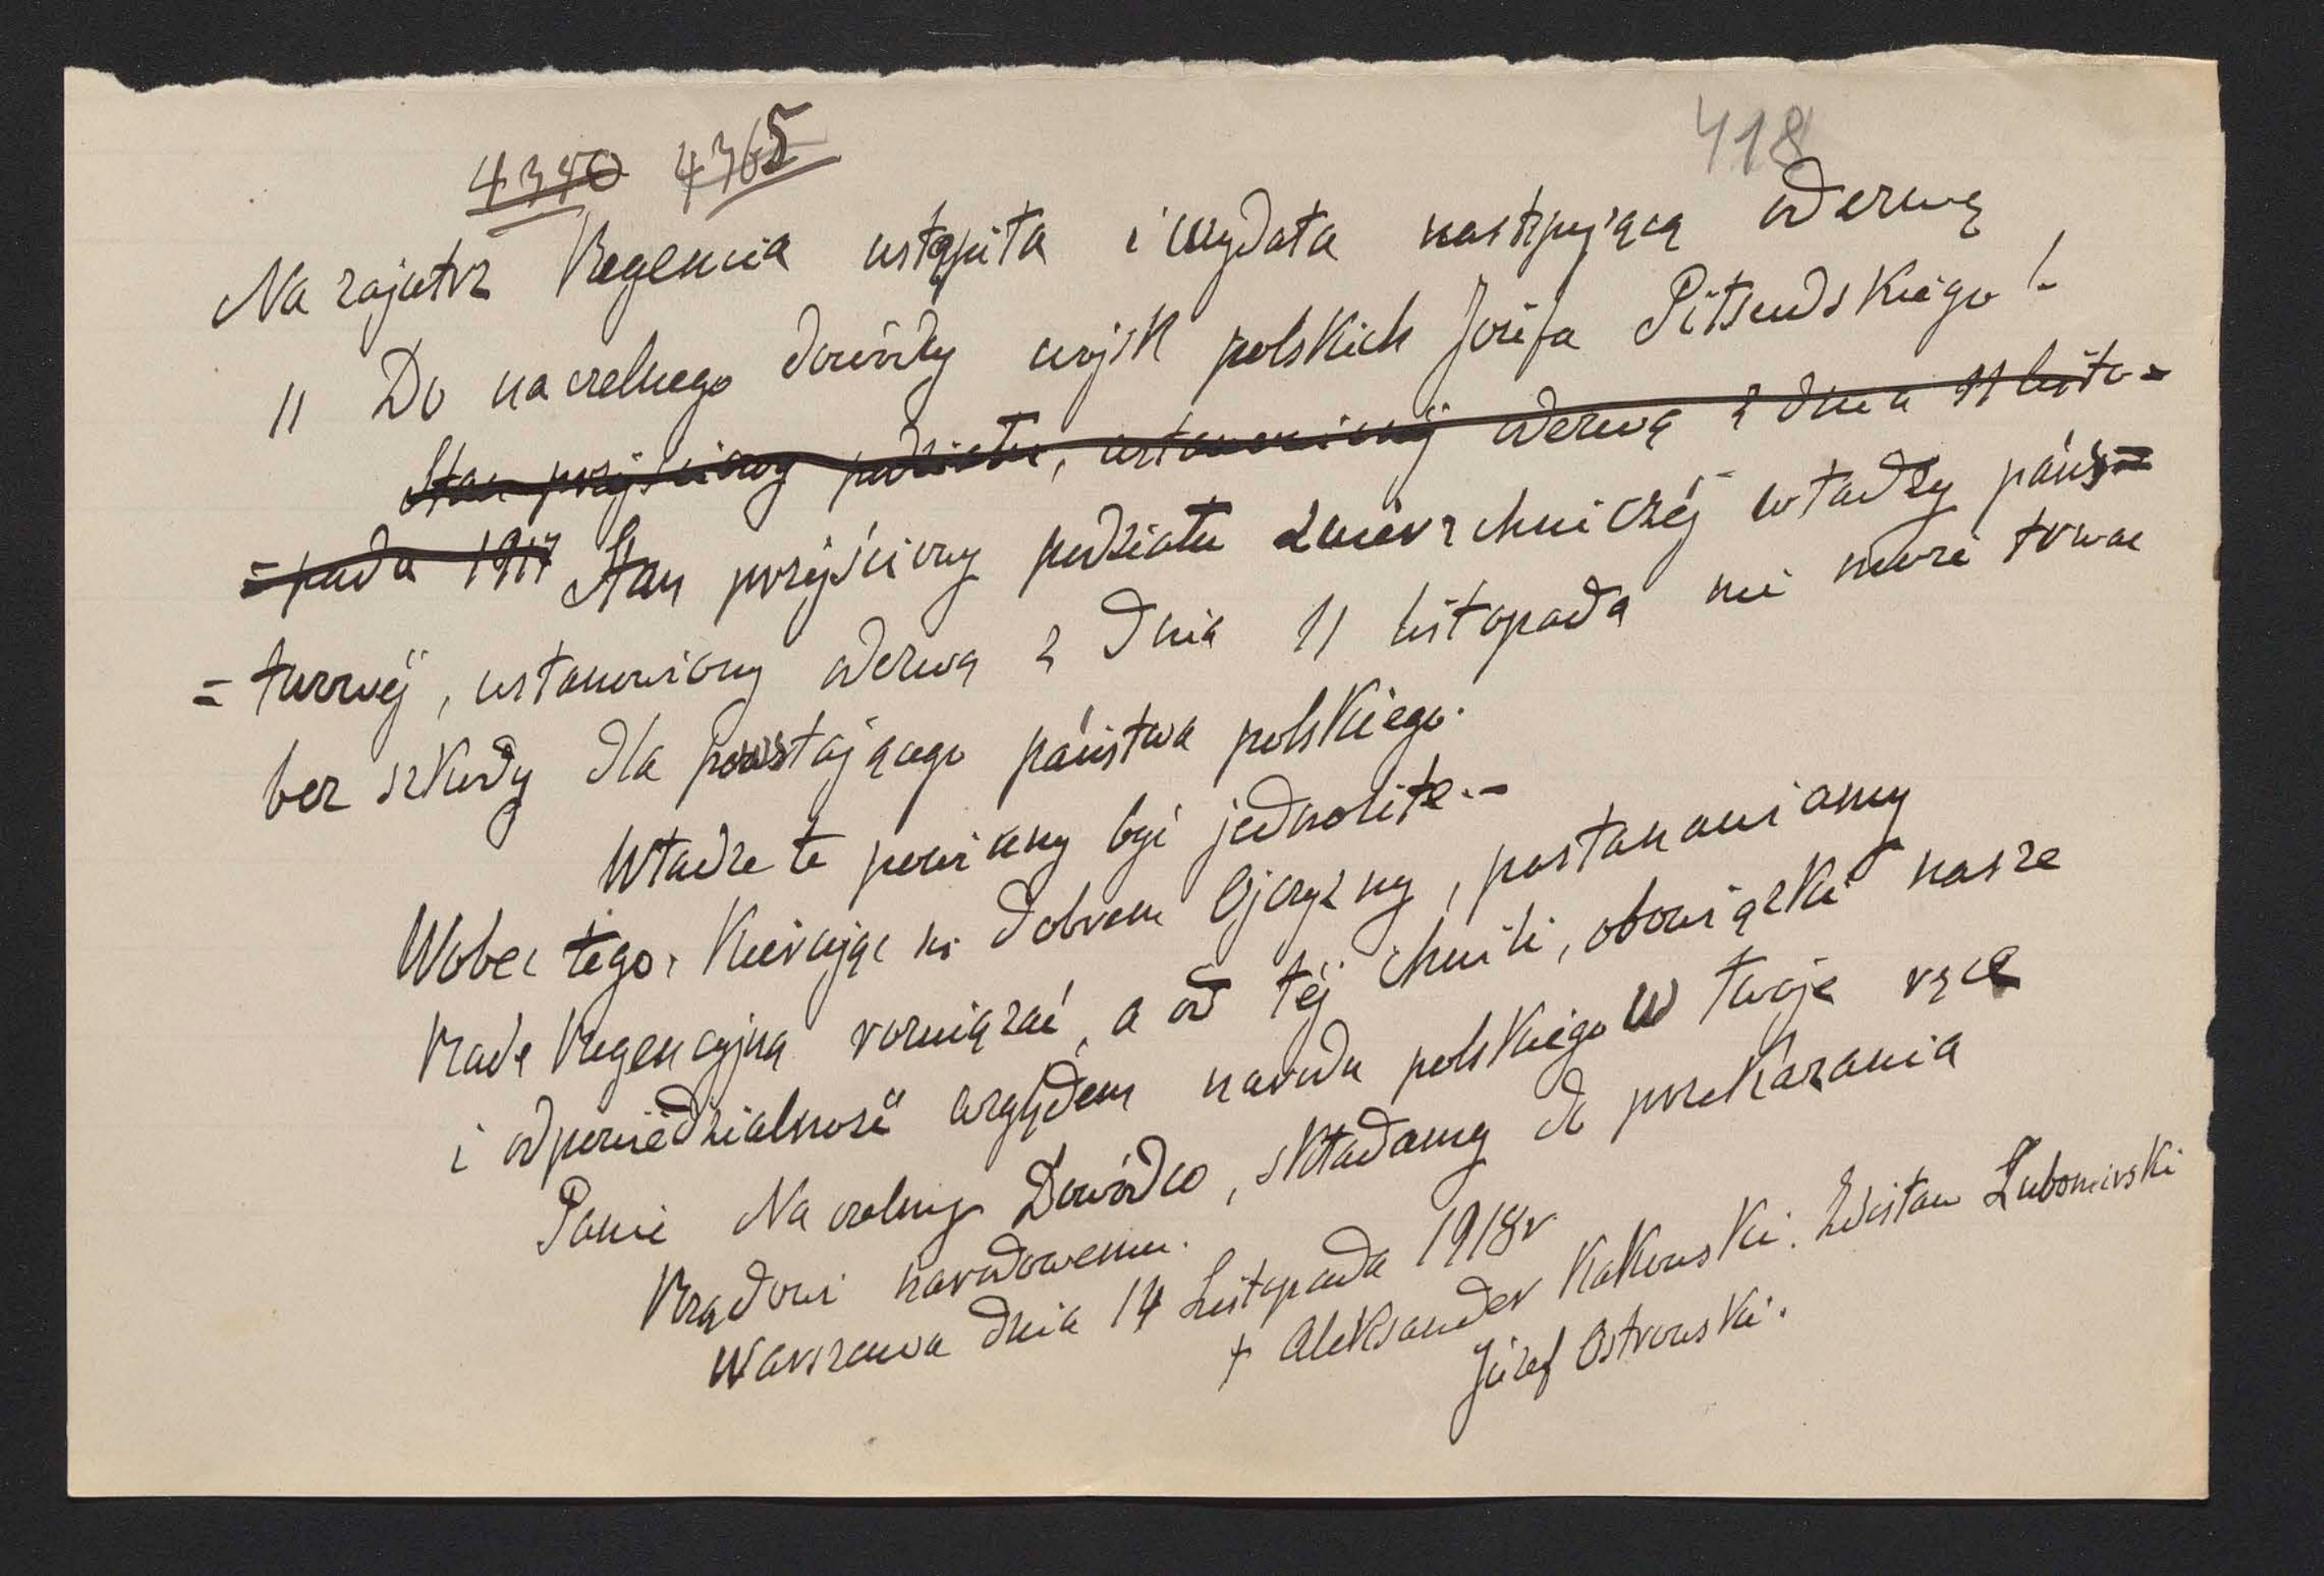 4340 4365
418
Na zajutrz Regencia ustąpiła i wydała następującą odezwę
" Do naczelnego dowódcy wojsk polskich Józefa Piłsudskiego!-
Stan przejściowy podziału, ustanowiony odezwą z dnia 11 listo=
=pada 1917 Stan przejściowy podziału zwierzchniczéj władzy pańs=
=twowéj, ustanowiony odezwą z dnia 11 listopada nie może trwać
bez szkody dla powstającego państwa polskiego.
Władze te powinny być jednolite.-
Wobec tego, Kierując się dobrem Ojczyzny, postanawiamy
Radę Regencyjną rozwiązać, a od téj chwili, obowiązki nasze
i odpowiedzialność względem narodu polskiego w twoje ręce
Panie Naczelny Dowódco, składamy do przekazania
Rządowi narodowemu.
Warszawa dnia 14 Listopada 1918r
+ Aleksander Kakowski. Zdzisław Lubomirski
Józef Ostrowski.